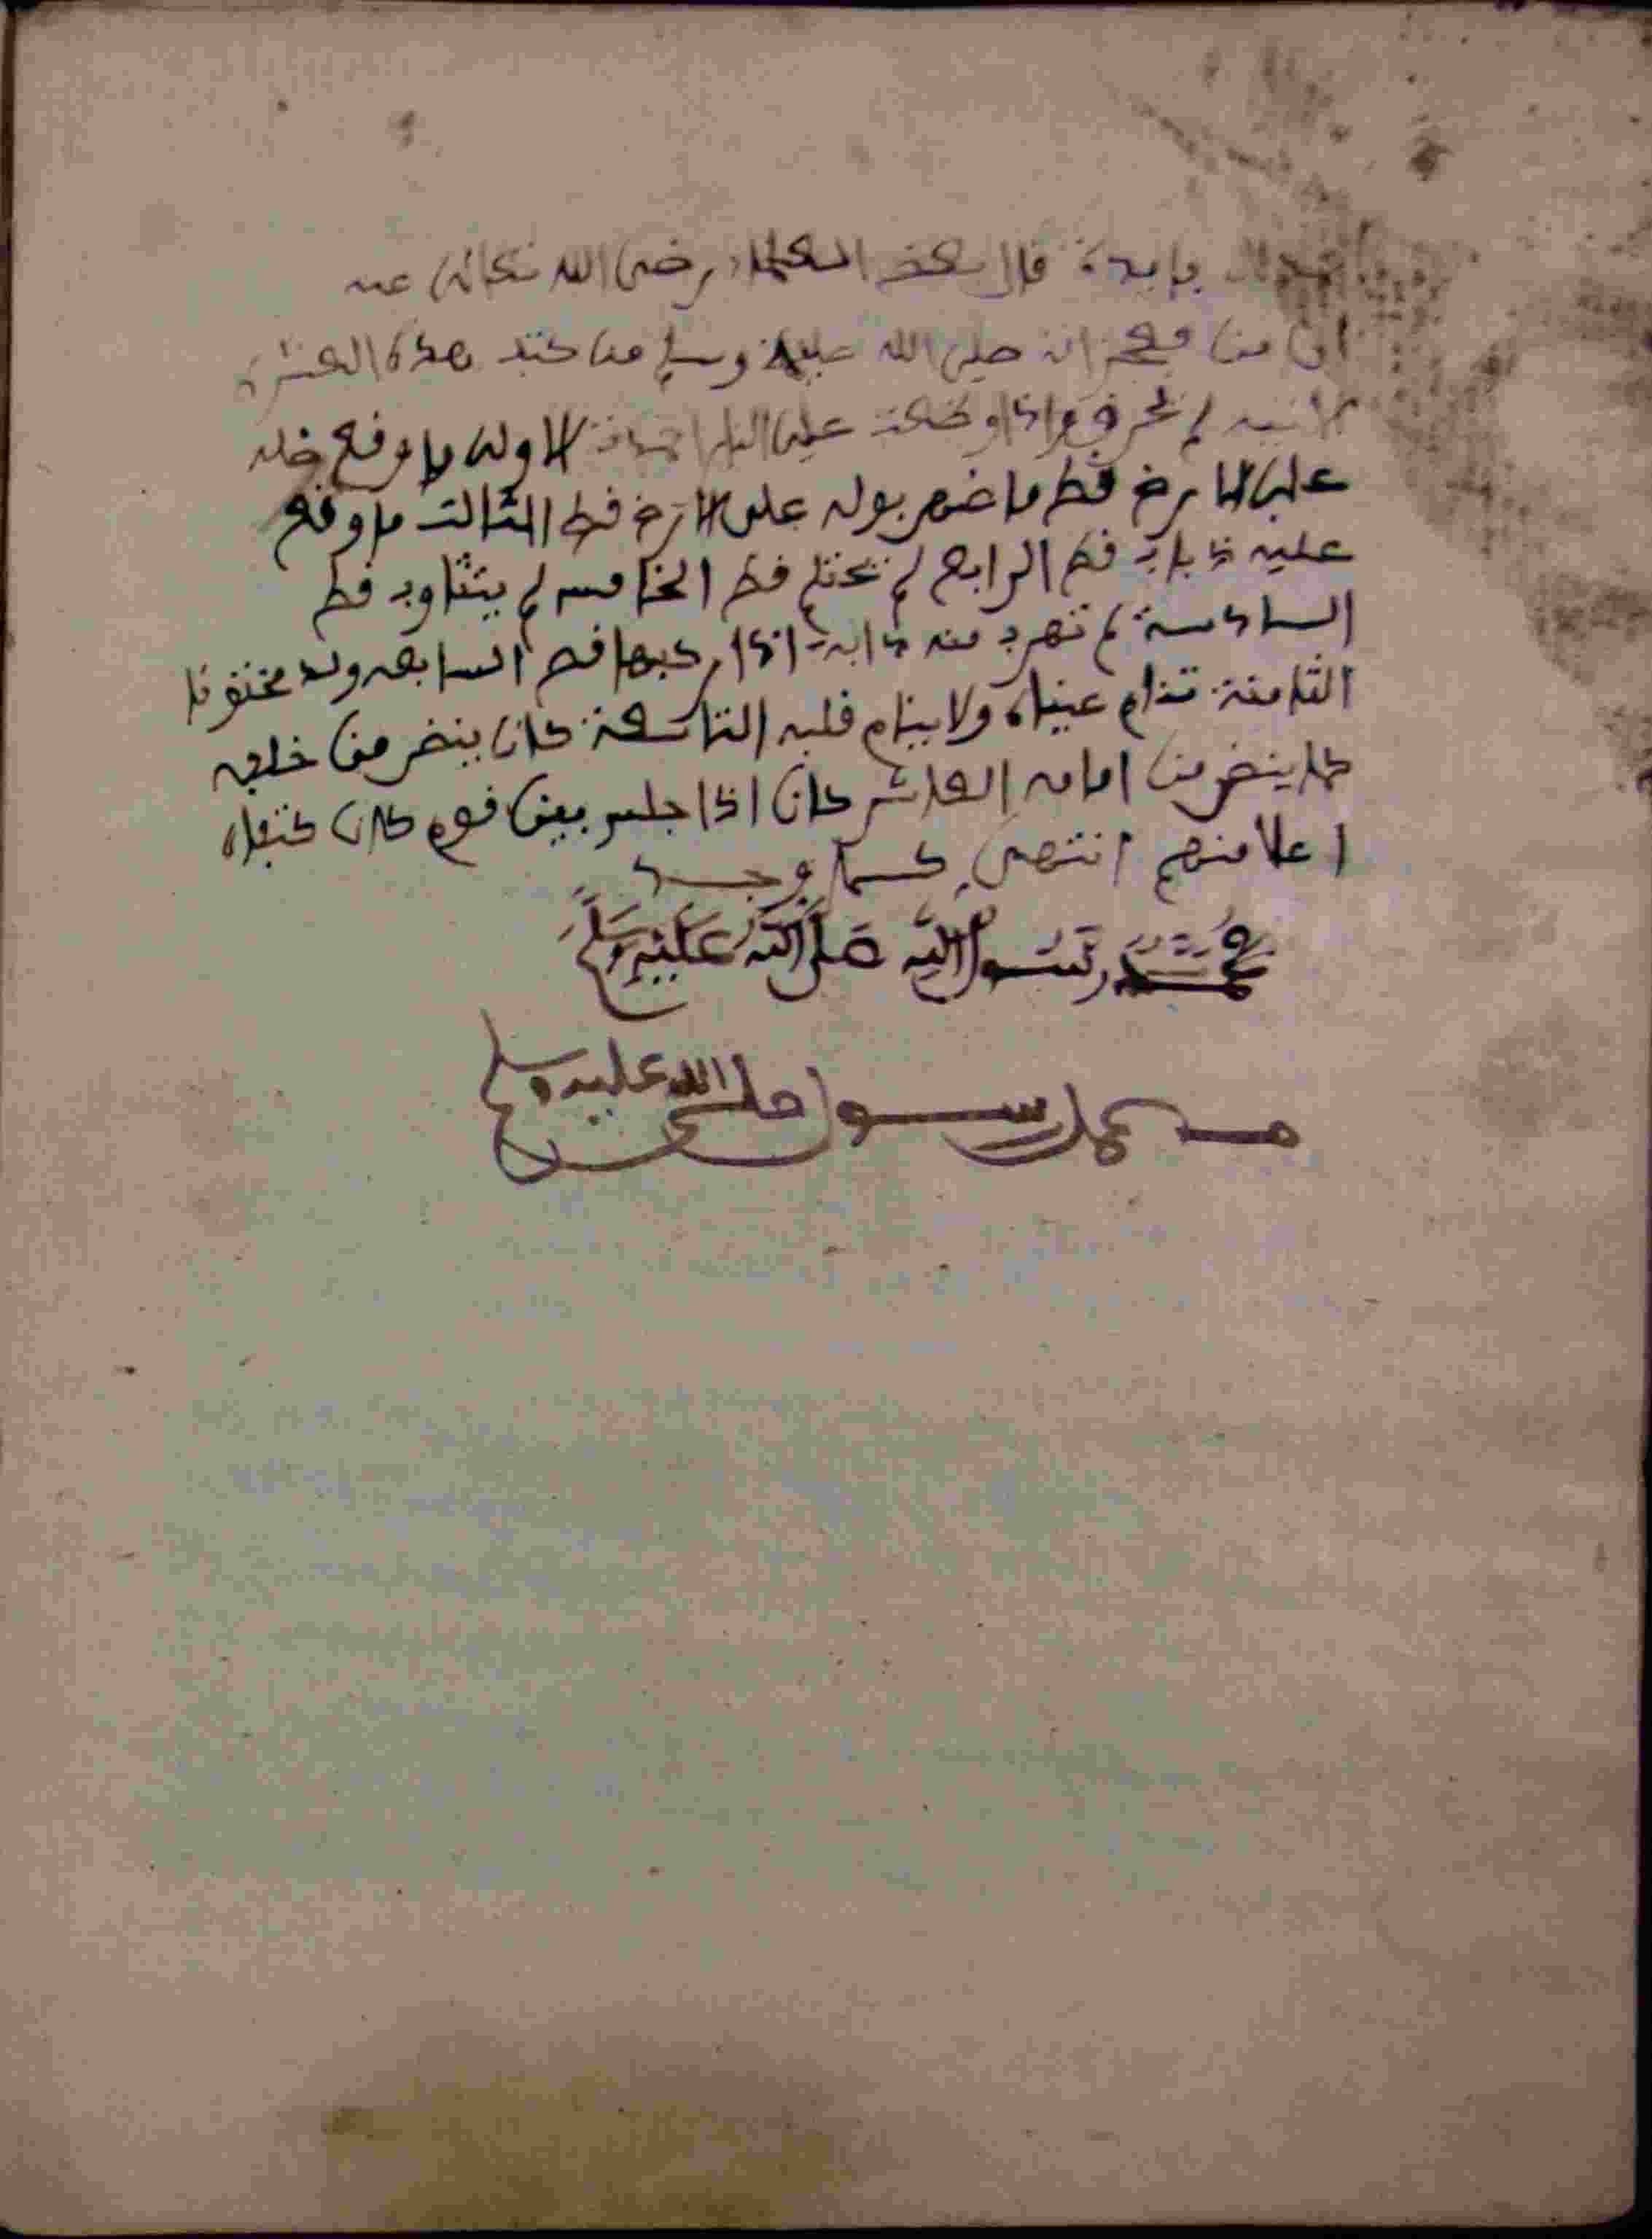 فايدة قال بعض العلماء رضى الله تعالى عنه
ان من معجزاته صلى الله عليه وسلم من كتب هذه العشرة
لم تحرق واذا وضعت على النار الاولى ما وقع ظله
على الارض قط ما ضهر بوله على الارض قط الثالث ما وقع
عليه ذباب قط الرابع لم يحتلم قط الخامسه لم يتثاوب قط
السادسة لم تهرب منه دابة اذا ركبها قط السابعه ولد مختونا
الثامنة تنام عيناه ولا ينام قلبه التاسعة كان ينضر من خلفه
كما ينضر من امامه العاشر كان اذا جلس بين قوم كان كتفاه
اعلا منهم انتهى كما وجد
مُحَمَّد رَسُول الله صَلَّى اللَّهُ عَلَيْهِ وَسَلَّمَ
محمد رسول صلى الله عليه وسلم